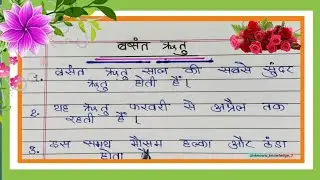 बसंत ऋतु
1. बसंत ऋतु साल की सबसे सुंदर
ऋतु होती हैं।
2. यह ऋतु फरवरी से अप्रैल तक
रहती हैं।
3. इस समय मौसम हल्का और ठंडा
होता